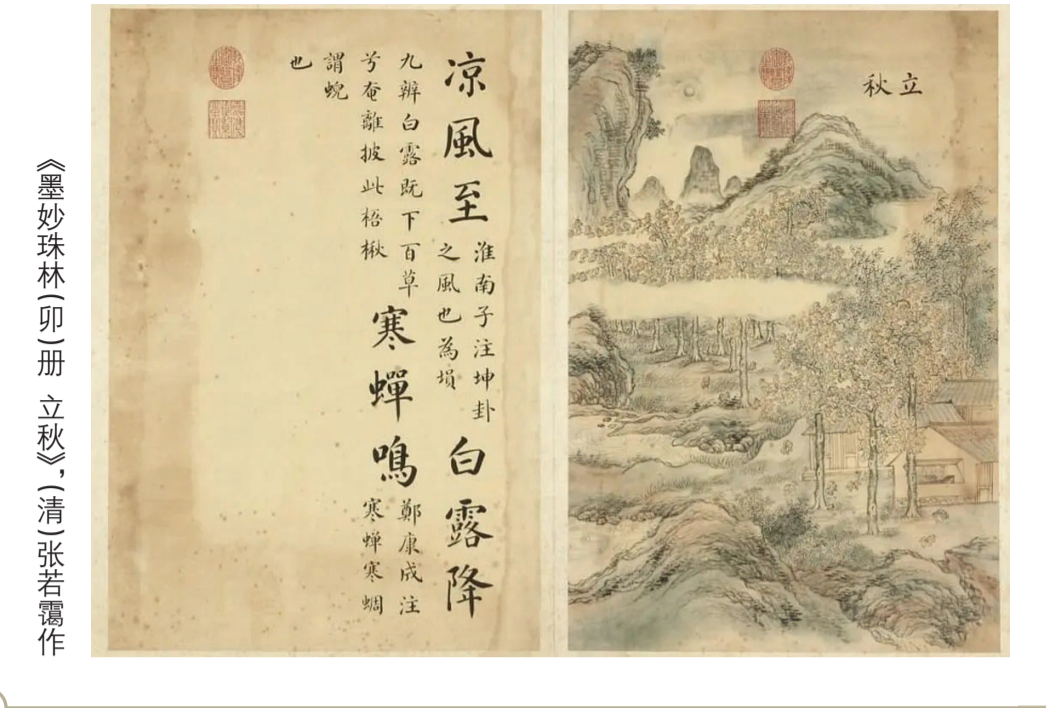 立秋
凉風至
淮南子注坤卦
之風也為塤
白露降
九辨白露既下百草
兮奄離披此梧楸
寒蟬鳴
鄭康成注
寒蟬寒蜩
謂蜺
也
《墨妙珠林(卯)册 立秋》,(清)张若霭作